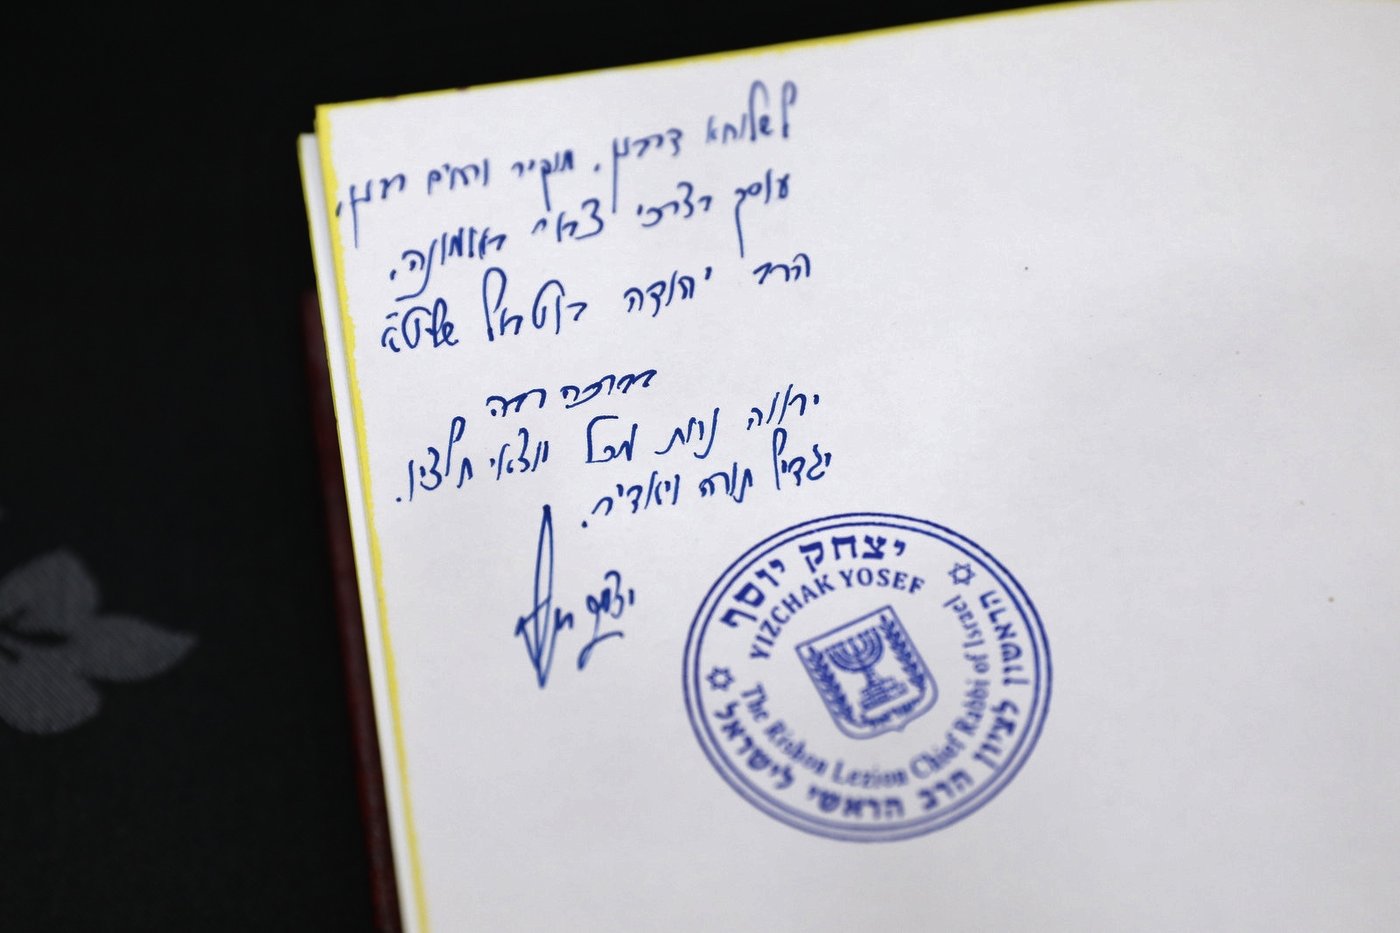 לשלוחא דרבנן, מוקיר ורחים רבנן,
עוסק בצרכי ציבור באמונה,
הרב יהודה שליט״א
בברכה רבה
ירווה נחת מכל יוצאי חלציו.
יגדיל תורה ויאדיר.
יצחק יוסף
יצחק יוסף
YIZCHAK YOSEF
The Rishon Lezion Chief Rabbi of Israel
הראשון לציון הרב הראשי לישראל